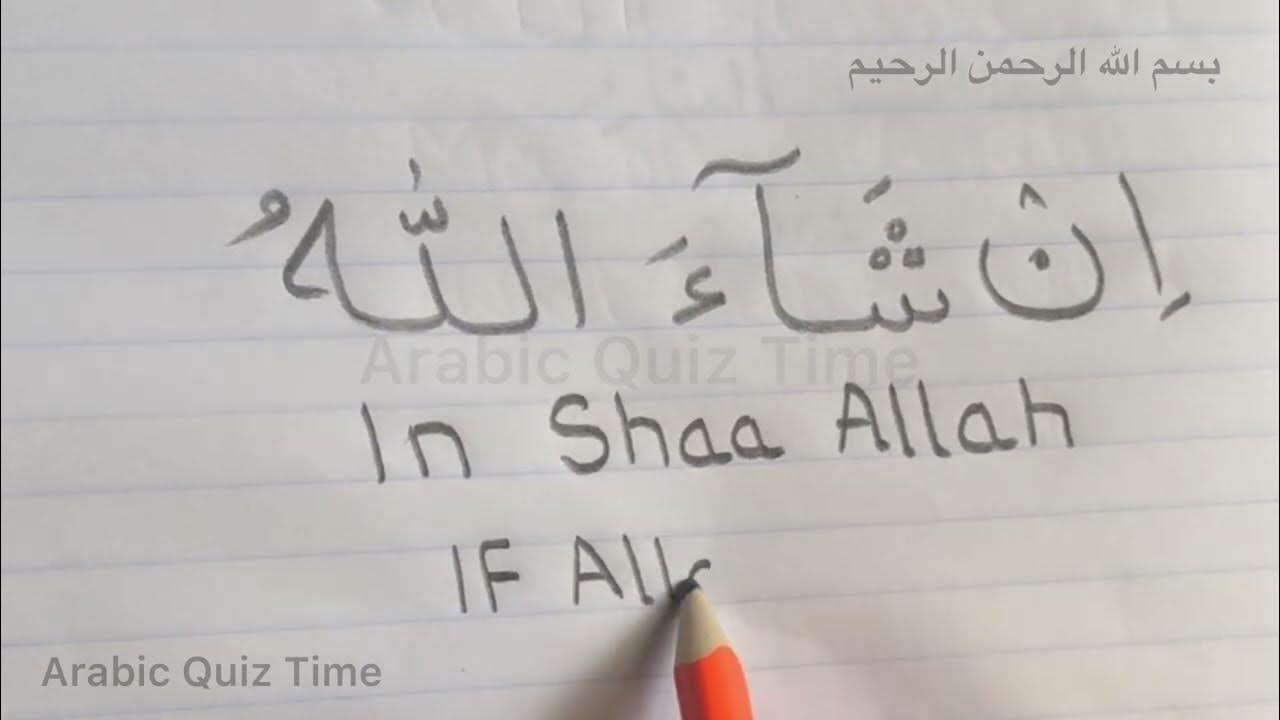 بسم الله الرحمن الرحيم
اِنْ شَآءَ اللّٰهُ
Arabic Quiz Time
In Shaa Allah
IF All
Arabic Quiz Time